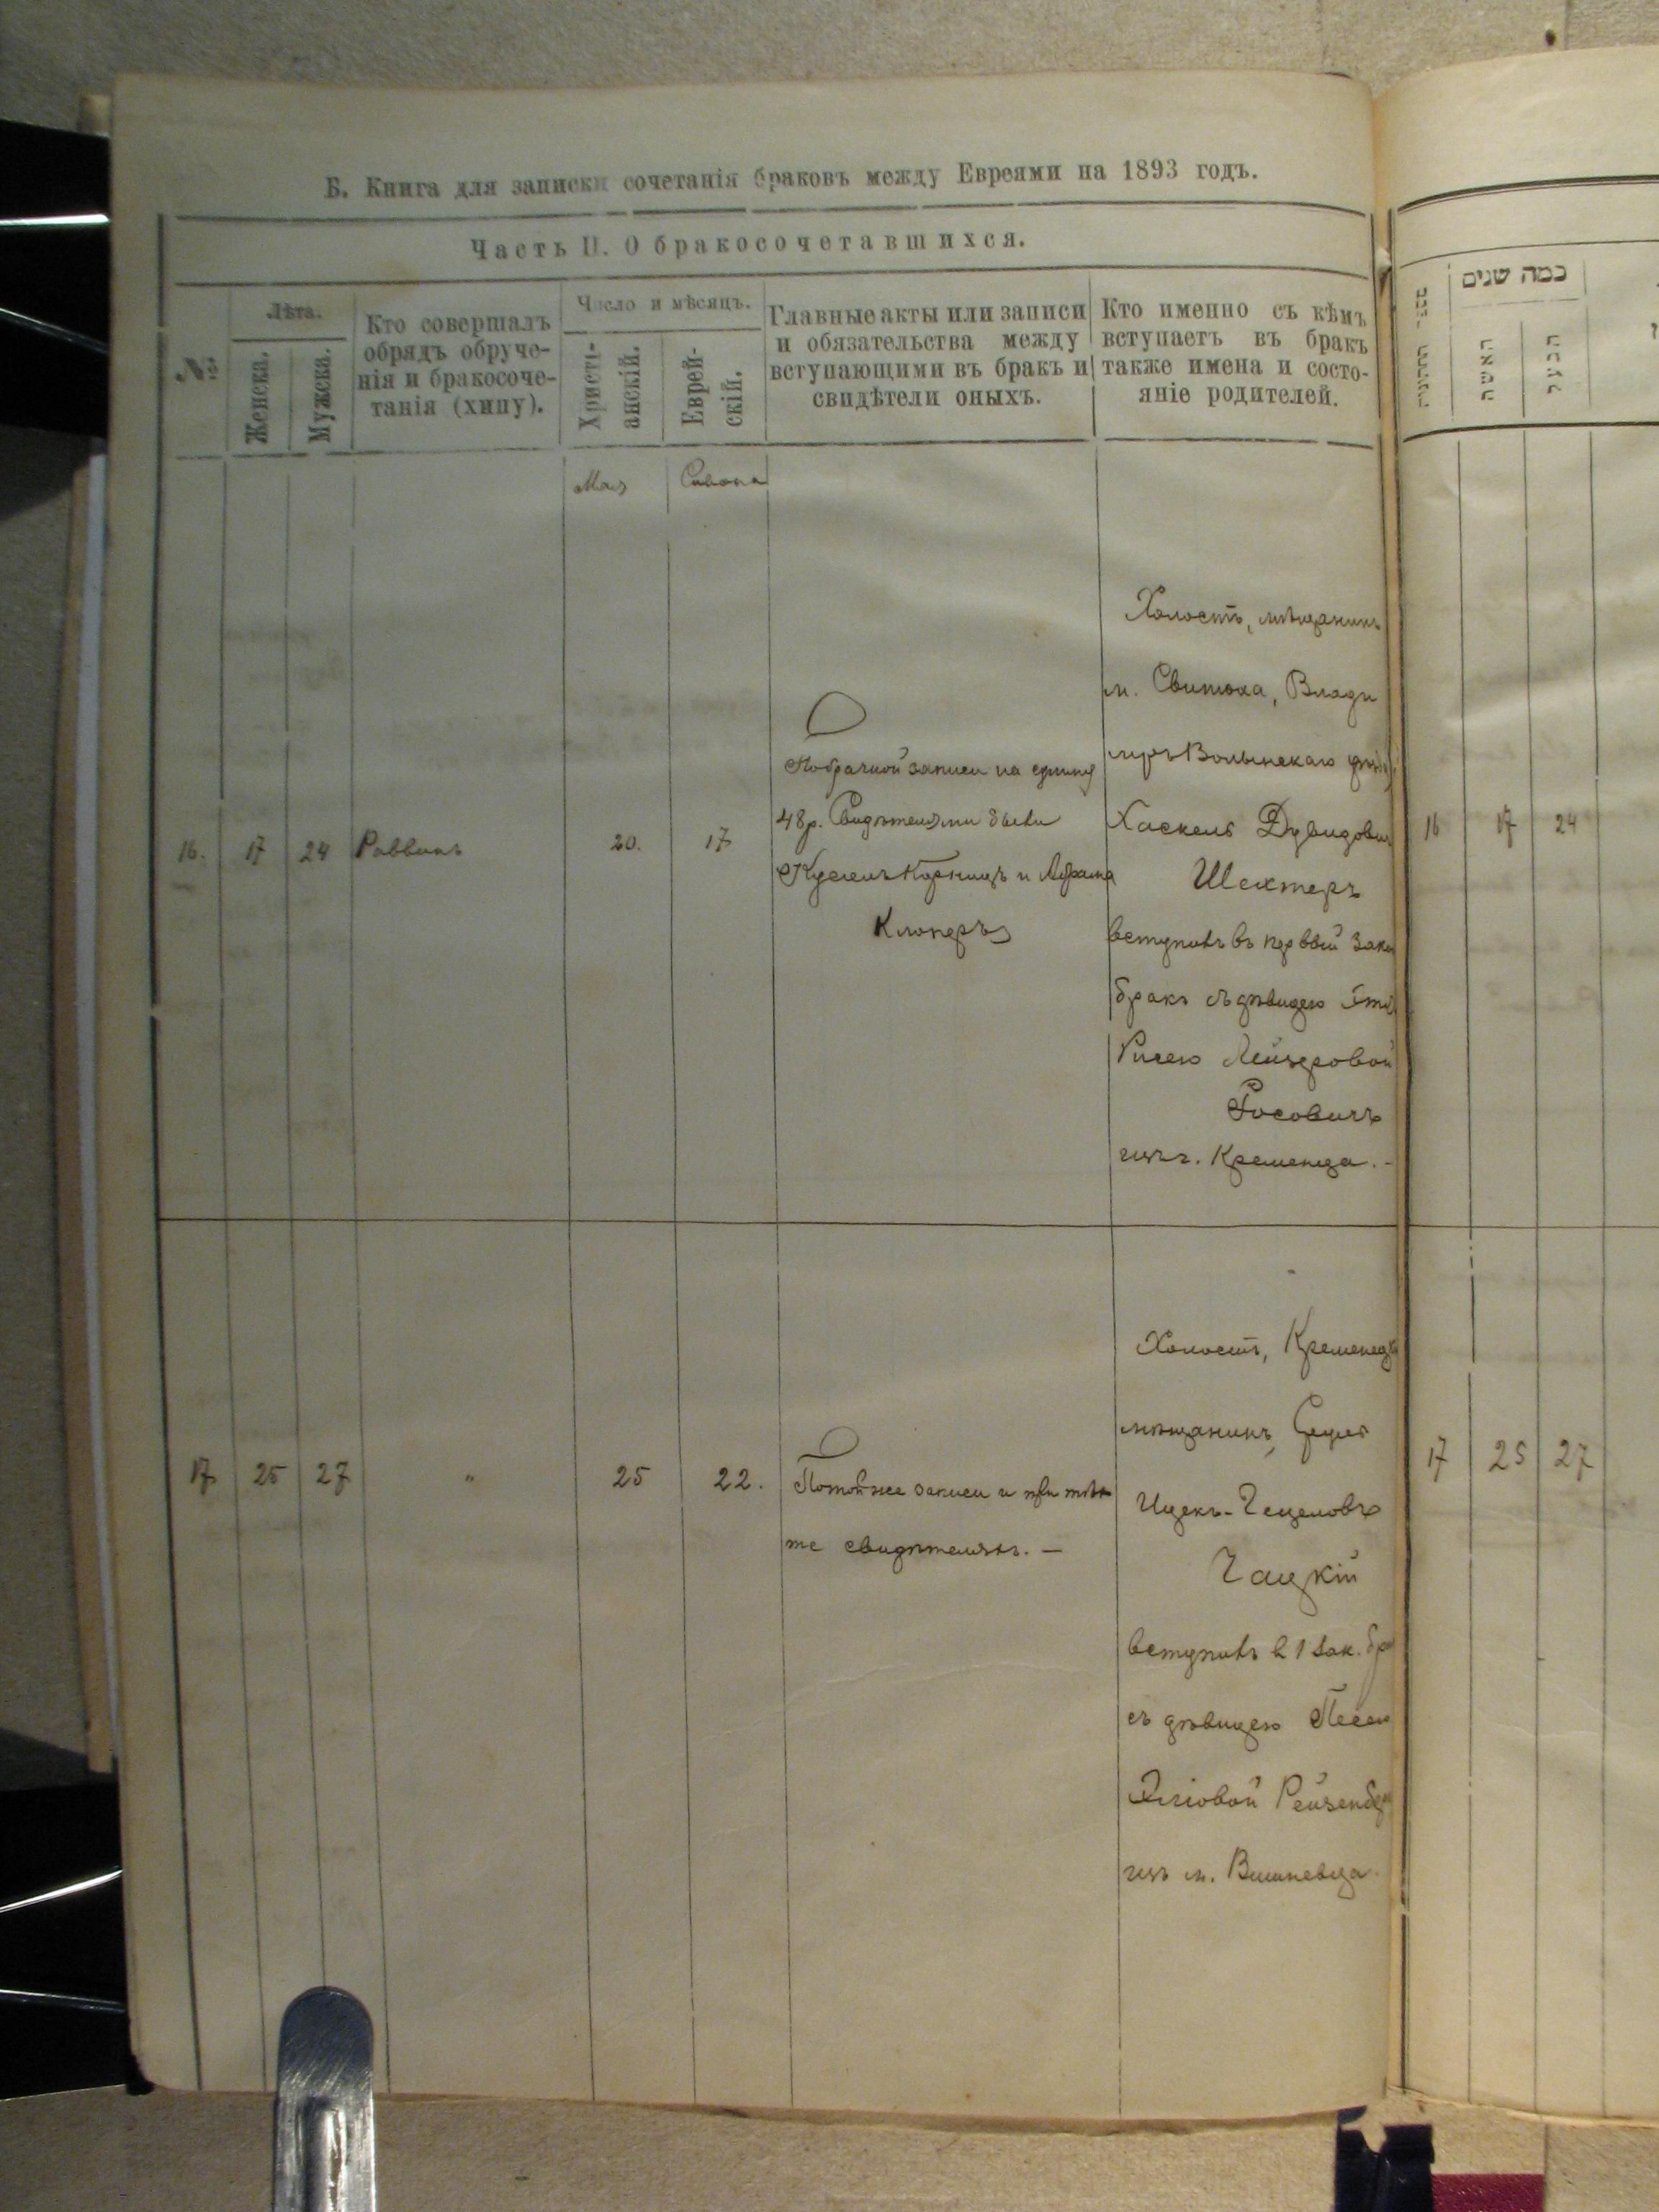 Б. Книга для записки сочетанія браковъ между Евреями на 1893 годъ.
Часть II. О бракосочетавшихся.
№
Лѣта.
Женска.
Мужска.
Кто совершалъ
обрядъ обруче-
нія и бракосоче-
танія (хипу).
Число и мѣсяцъ.
Христі-
анскій.
Еврей-
скій.
Главные акты или записи
и обязательства между
вступающими въ бракъ и
свидѣтели оныхъ.
Кто именно съ кѣмъ
вступаетъ въ бракъ
также имена и состо-
яніе родителей.
Мая
Сивона
16.
17
24
Раввинъ
20.
17
Побрачной записи на сумму
48р. Свидѣтелями были
и Абрама
Клоперъ
Холостъ, мѣщанинъ
м. Свитюха, Влади
миръ Волынскаго
Хаскель Дувидовъ
Шехтеръ
вступилъ въ первый Зак
бракъ съ дѣвицею
Рисею Лейзеровой
Росовичъ
изъ г. Кременца. -
17
25
27
"
25
22.
Потой же записи и при тѣхъ
же свидѣтеляхъ. —
Холостъ, Кременецк
мѣщанинъ,
Ицекъ-Гецеловъ
Чацкій
вступилъ в 1 Зак. бра
съ дѣвицею Песею
Рейзенбе
изъ м. Вишневца
כמה שנים
האשה
הבעל
16
17
24
17
25
27